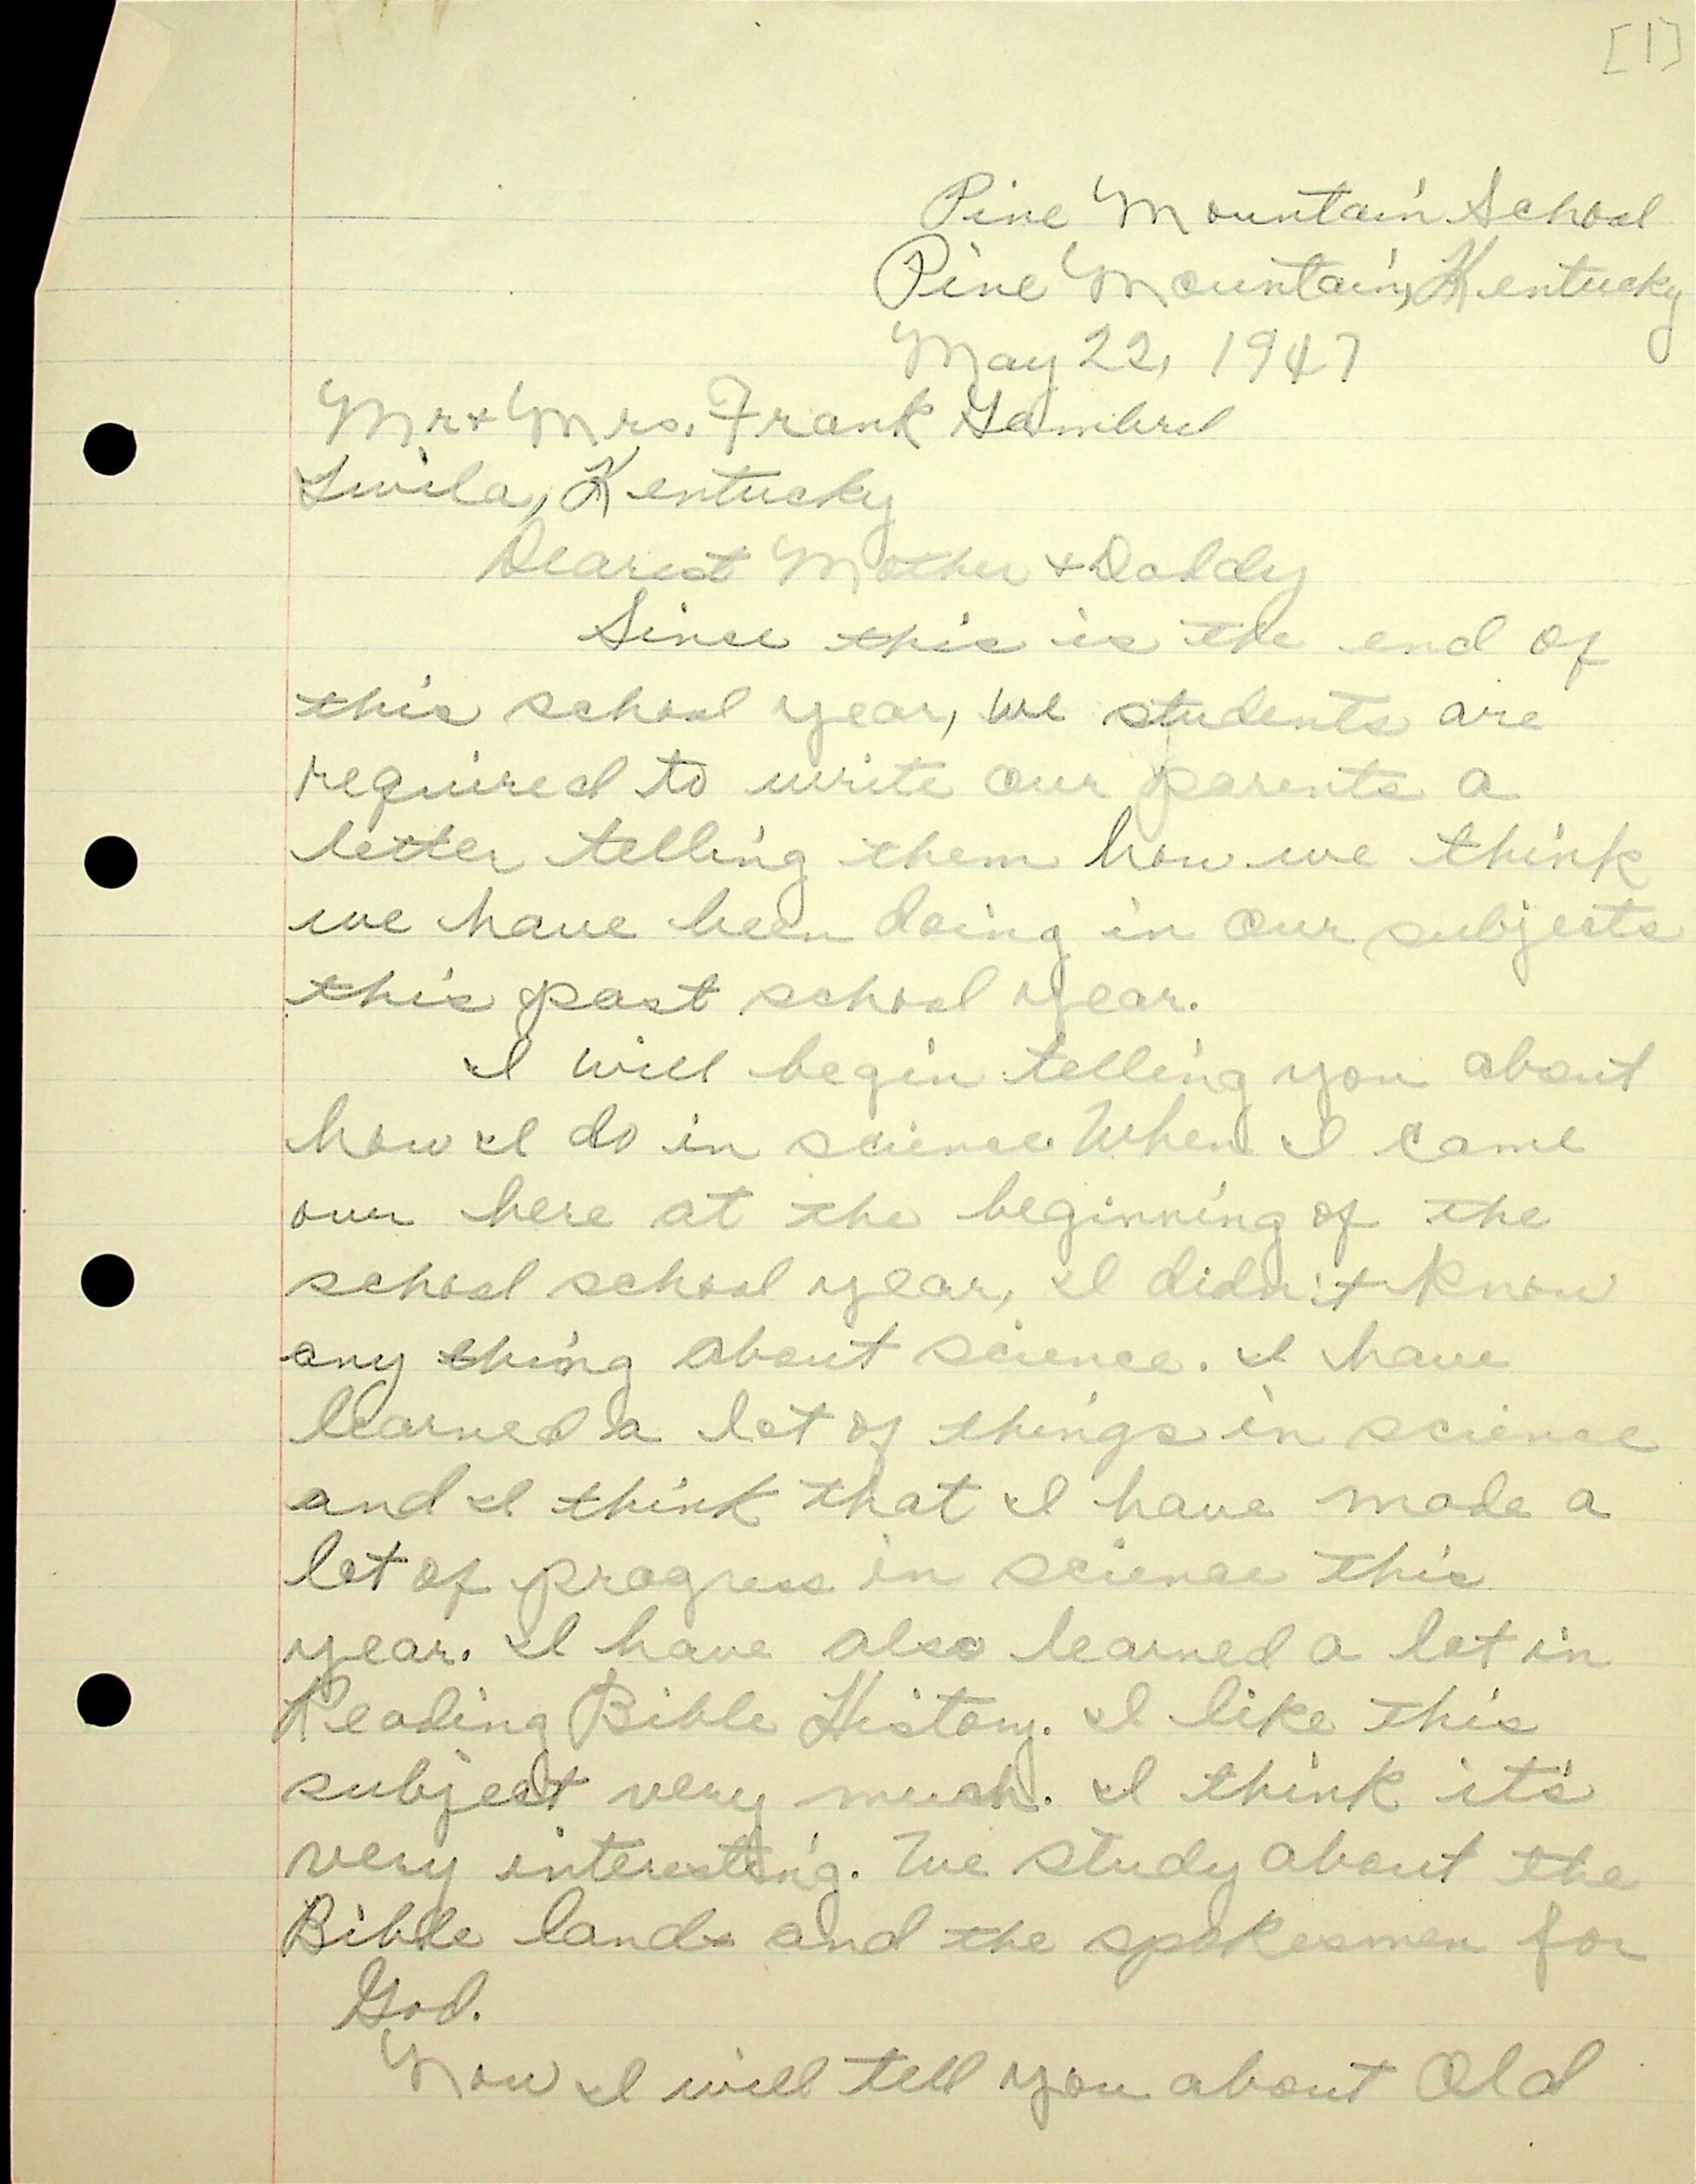 [1]
Pine Mountain School
Pine Mountain, Kentucky
May 22, 1947
Mr + Mrs. Frank Gambrel
Kentucky
Dearest Mother + Daddy
Since this is the end of
this school year, we students are
required to write our parents a
letter telling them how we think
we have been doing in our subjects
this past school year.
I will begin telling you about
how I do in science. When I came
over here at the beginning of the
school school year, I didn't know
any thing about science. I have
learned a lot of things in science
and I think that I have made a
lot of progress in science this
year. I have also learned a lot in
Reading Bible History. I like this
subject very much. I think it's
very interesting. We study about the
Bible lands and the spokesmen for
God.
Now I will tell you about Old